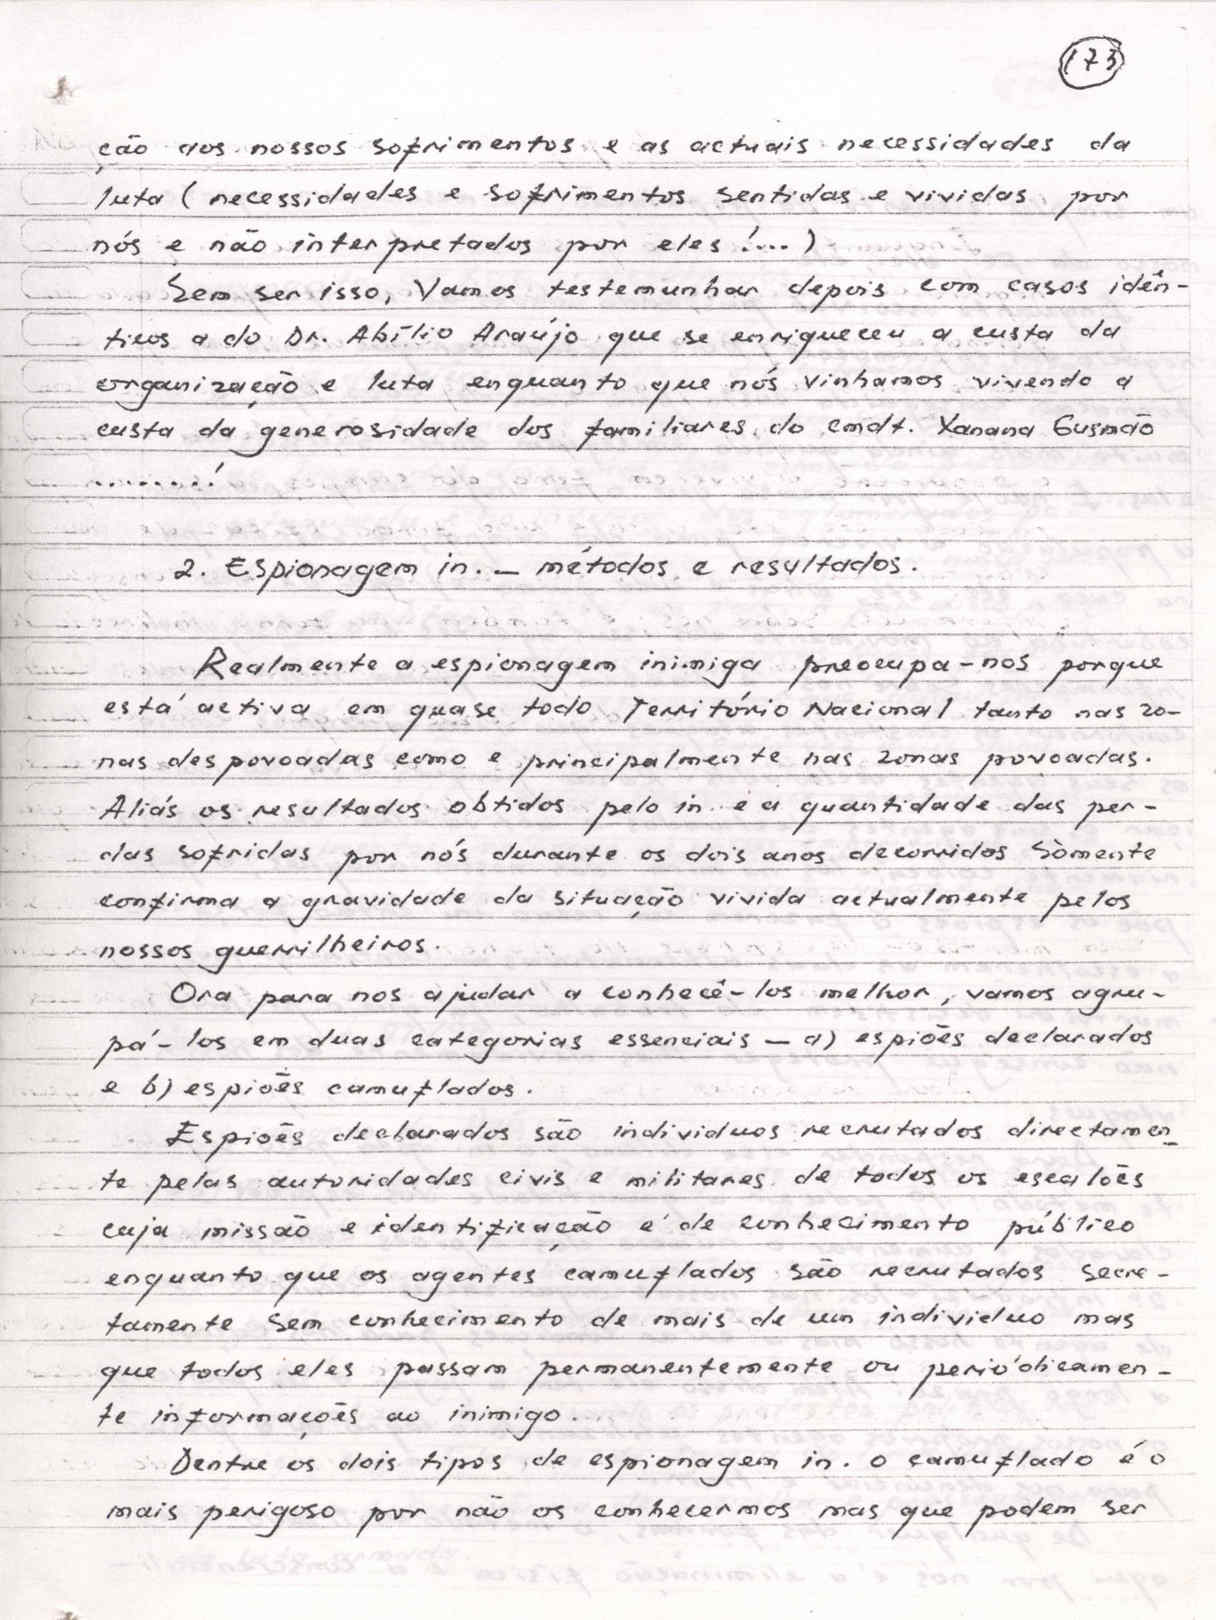 173
ção aos nossos sofrimentos e as actuais necessidades da
luta (necessidades e sofrimentos sentidas e vividas por
nós e não interpretados por eles!...)
Sem ser isso, Vamos testemunhar depois com casos idên-
ticos a do Dr. Abílio Araújo que se enriqueceu a custa da
organização e luta enquanto que nós vinhamos vivendo a
custa da generosidade dos familiares do cmdt. Xanana Gusmão
........!
2. Espionagem in. — métodos e resultados.
Realmente a espionagem inimiga preocupa-nos porque
está activa em quase todo Território Nacional tanto nas zo-
nas despovoadas como e principalmente nas zonas povoadas.
Aliás os resultados obtidos pelo in e a quantidade das per-
das sofridas por nós durante os dois anos decorridos sòmente
confirma a gravidade da situação vivida actualmente pelos
nossos guerrilheiros.
Ora para nos ajudar a conhecê-los melhor, vamos agru-
pá-los em duas categorias essenciais — a) espiões declarados
e b) espiões camuflados.
Espiões declarados são individuos recrutados directamen-
te pelas autoridades civis e militares de todos os escalões
cuja missão e identificação é de conhecimento público
enquanto que os agentes camuflados são recrutados secre-
tamente sem conhecimento de mais de um individuo mas
que todos eles passam permanentemente ou periódicamen-
te informações ao inimigo.
Dentre os dois tipos de espionagem in. o camuflado é o
mais perigoso por não os conhecermos mas que podem ser